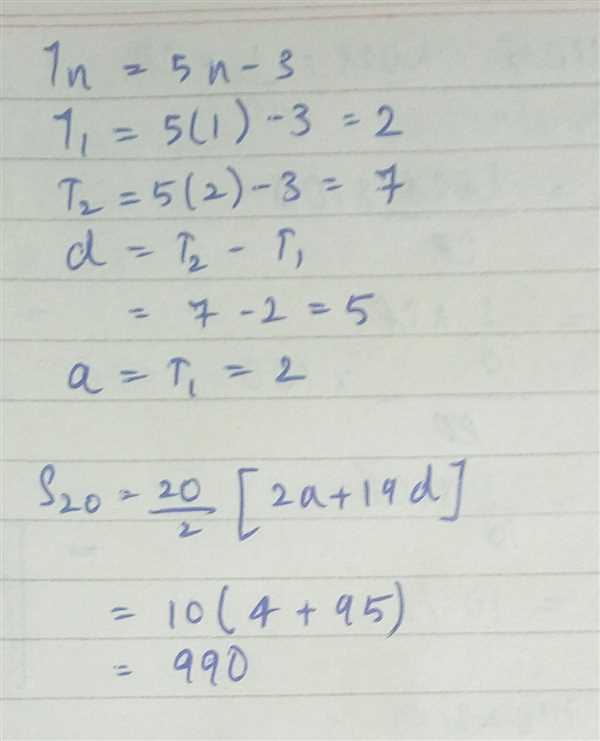 Tn = 5n - 3
T1 = 5(1) - 3 = 2
T2 = 5(2) - 3 = 7
d = T2 - T1
= 7 - 2 = 5
a = T1 = 2
S20 = 20/2 [2a + 19d]
= 10(4 + 95)
= 990